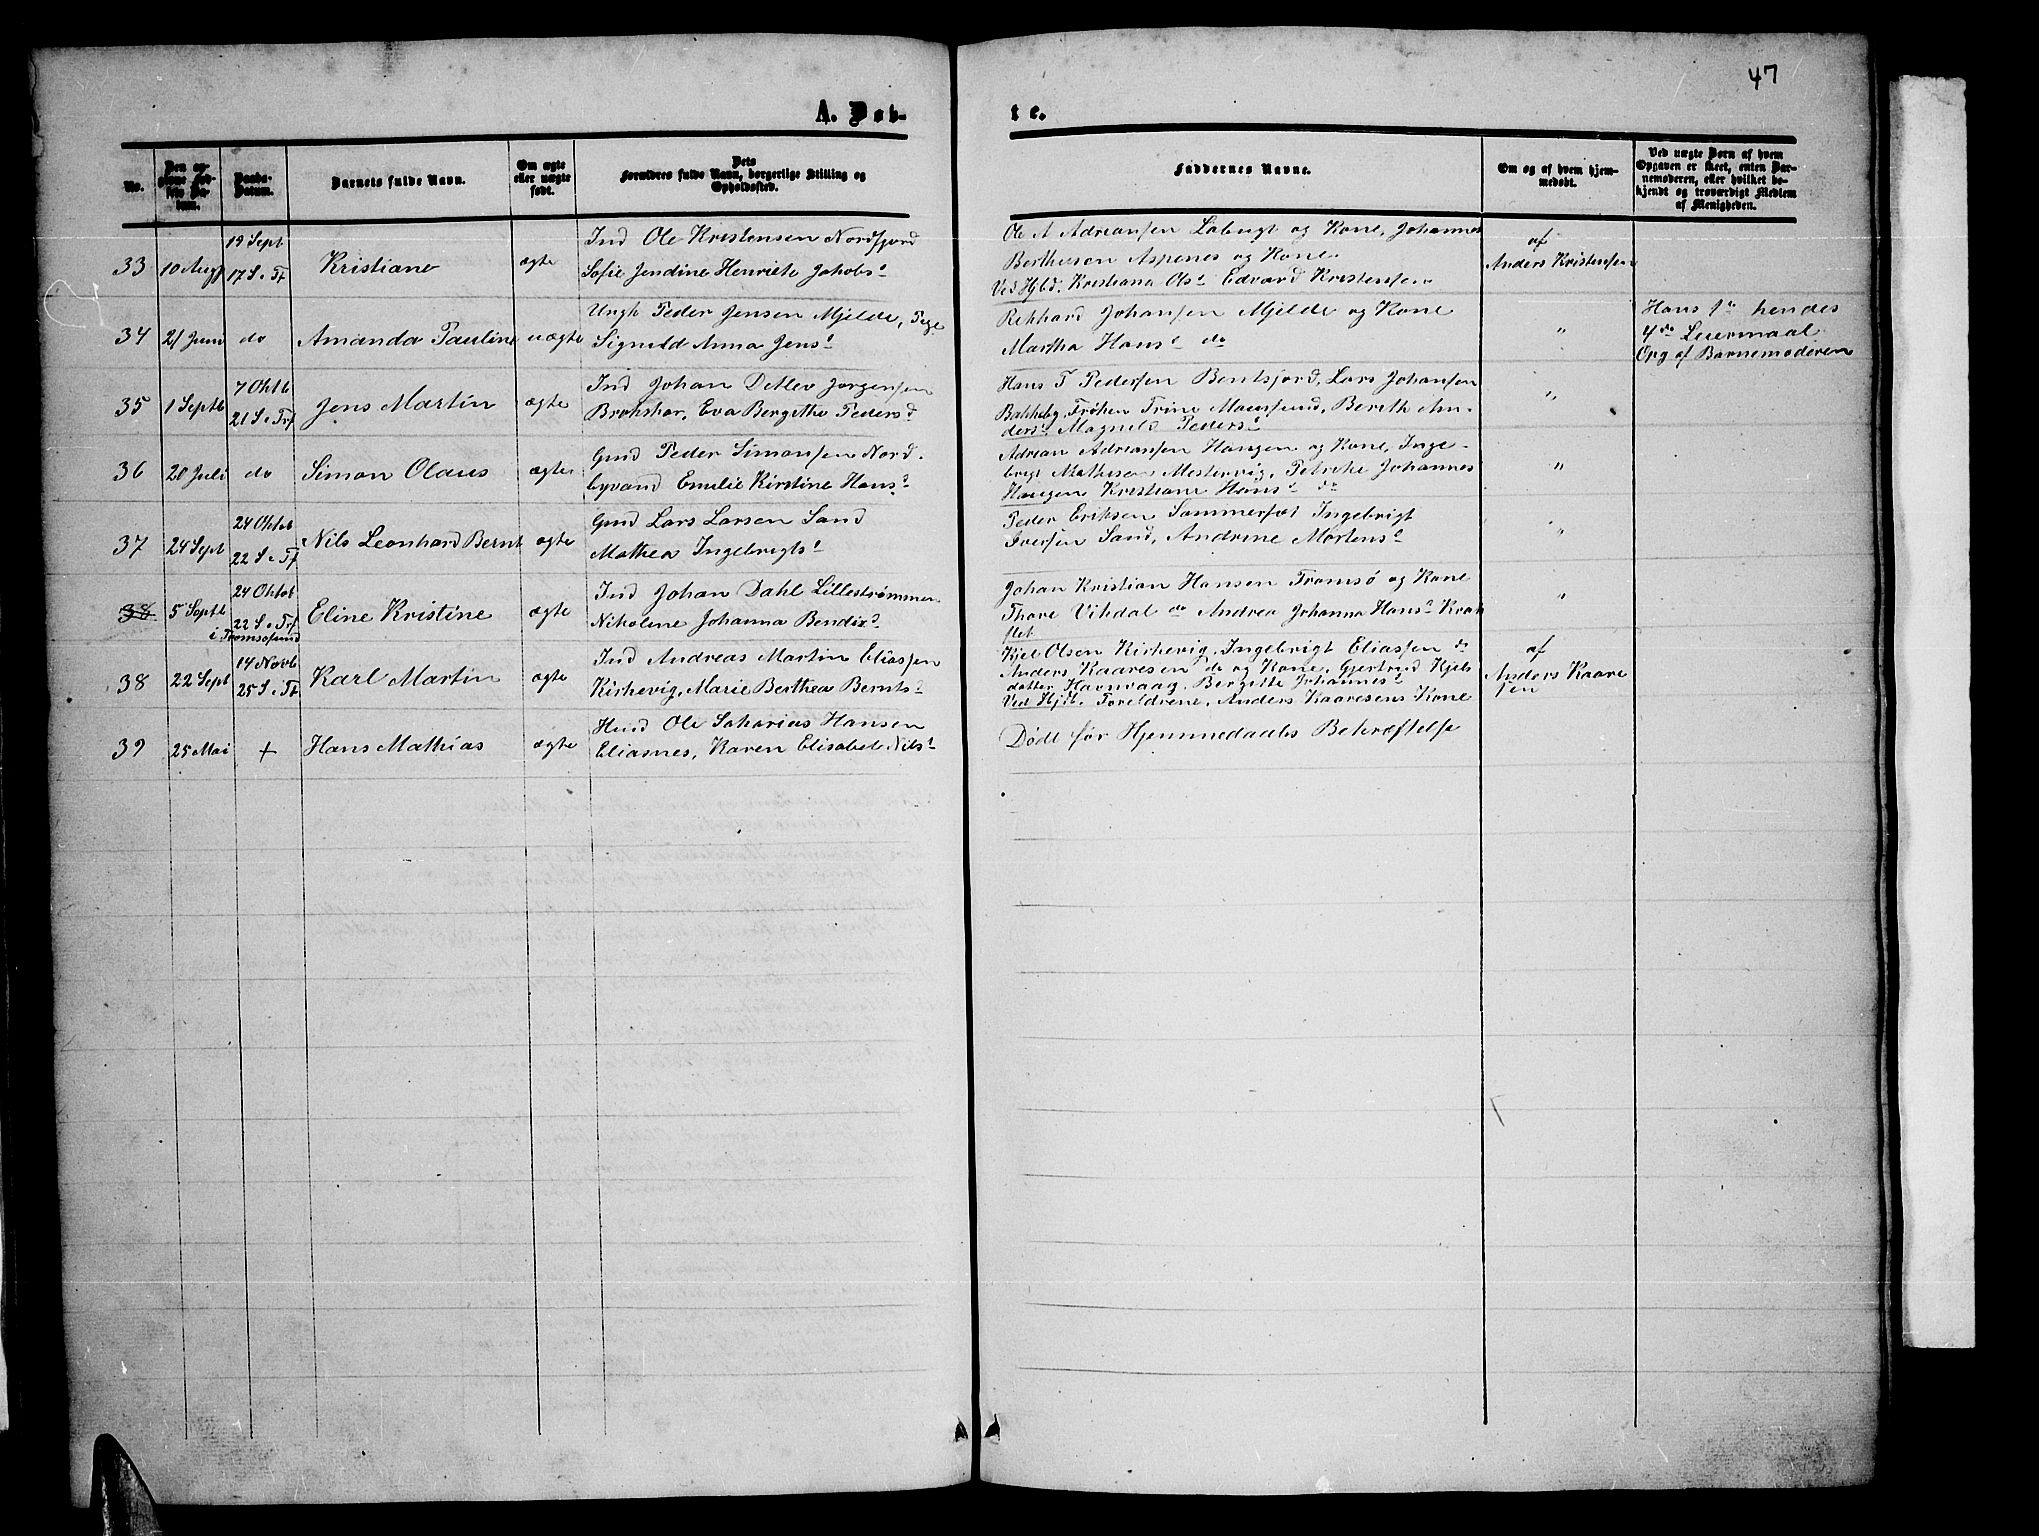 47
A. Døb-
te.
No.
Den angivne fødsels Datum.
Daabs-Datum.
Barnets fulde Navn.
Om ægte eller uægte født.
Dets Forældres fulde Navn, borgerlige Stilling og Opholdssted.
Faddernes Navne.
Om og af hvem hjemmedøbt.
Ved uægte Børn af hvem Opgaven er skeet, enten Barnemoderen, eller hvilket bekjendt og troværdigt Medlem af Menigheden.
33
10 Augt
19 Sept
17 S. e. Tf
Kristiane
ægte
Ind Ole Kristensen Nordfjord
Sofie Jendine Henriete Jakobsd
Ole A Adreansen Løbugt og Kone, Johannes
Berthesen Aspenes og Kone
Ved Hjbd. Kristiana Olsd Edvard Kristensen
af
Anders Kristensen
34
21 Juni
do
Amanda Pauline
uægte
Ungk Peder Jensen Mjelde, Pige
Signild Anna Jensd
Rekhard Johansen Mjelde og Kone
Martha Hansd do
"
Hans 1te hendes
4de Leiermaal
Opg af Barnemoderen
35
1 Septb
7 Oktb
21 S. e. Trf
Jens Martin
ægte
Ind Johan Detlev Jørgensen
Brokskar, Eva Bergithe Pedersd
Hans T Pedersen Bentsjord, Lars Johansen
Bakkebg, Frøken Trine Maursund, Bereth An-
dersd Magnild Pedersd
"
36
20 Juli
do
Simon Olaus
ægte
Gmd Peder Simonsen Nord-
byvand Emilie Kirstine Hansd
Adrian Adriansen Haugen og Kone, Inge-
brigt Mathisen Mestervig, Petrike Johannes
Haugen Kristiane Hansd do
"
37
24 Sept
24 Oktob
22 S. e. Tf
Nils Leonhard Bernt
ægte
Gmd Lars Larsen Sand
Mathea Ingebrigtsd
Peder Eriksen Sommersæt Ingebrigt
Iversen Sand, Andrine Mortensd
"
38
5 Septb
24 Oktob
22 S. e. Trf
i Tromsøsund
Eline Kristine
ægte
Ind Johan Dahl Lillestrømmen
Nikoline Johanna Bendixd
Johan Kristian Hansen Tromsø og Kone
Thore Vikdal do Andrea Johanna Hansd Krok
slet
"
38
22 Sept
14 Novb
25 S. e. Tf
Karl Martin
ægte
Ind Andreas Martin Eliassen
Kirkevig, Marie Berthea Berntsd
Kjel Olsen Kirkevig, Ingebrigt Eliassen do
Anders Kaaresen do og Kone, Gjertrud Kjels
datter Havnvaag, Bergitte Johannesd
Ved Hjd. Foreldrene, Anders Kaaresens Kone
af
Anders Kaare
sen
39
25 Mai
+
Hans Mathias
ægte
Husd Ole Sakarias Hansen
Eliasnes, Karen Elisabet Nilsd
Dødt før Hjemmedaabs Bekræftelse